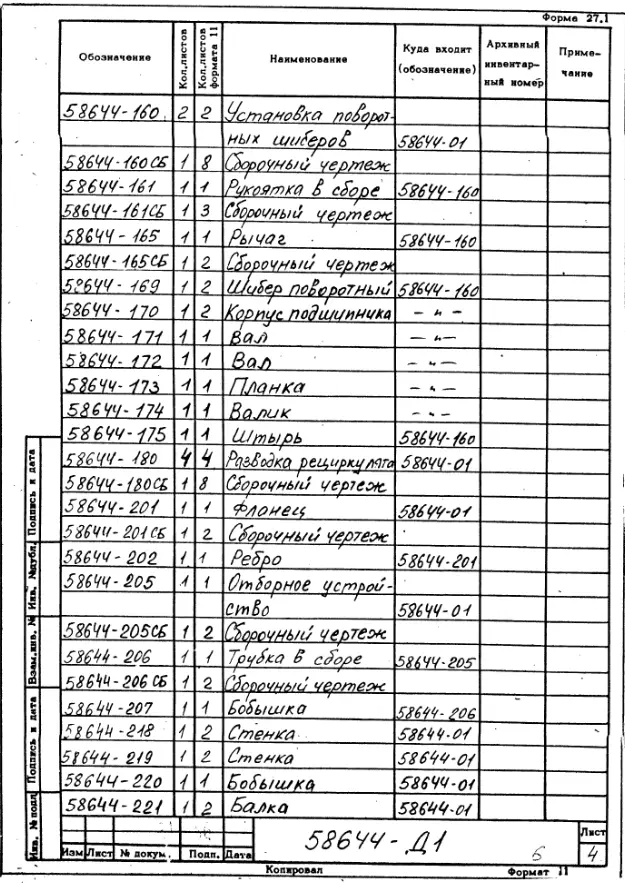 Форма 27.1
Обозначение Кол.листов Кол.листов формата 11 Наименование Куда входит (обозначение) Архивный инвентарный номер Примечание
58644-160 2 2 Установка поворот-
ных шиберов 58644-01
58644-160СБ 1 8 Сборочный чертеж
58644-161 1 1 Рукоятка в сборе 58644-160
58644-161СБ 1 3 Сборочный чертеж
58644-165 1 1 Рычаг 58644-160
58644-165СБ 1 2 Сборочный чертеж
58644-169 1 2 Шибер поворотный 58644-160
58644-170 1 2 Корпус подшипника — " —
58644-171 1 1 Вал — " —
58644-172 1 1 Вал — " —
58644-173 1 1 Планка — " —
58644-174 1 1 Валик — " —
58644-175 1 1 Штырь 58644-160
58644-180 4 4 Разводка рециркулята 58644-01
58644-180СБ 1 8 Сборочный чертеж
58644-201 1 1 Фланец 58644-01
58644-201СБ 1 2 Сборочный чертеж
58644-202 1 1 Ребро 58644-201
58644-205 1 1 Отборное устрой-
ство 58644-01
58644-205СБ 1 2 Сборочный чертеж
58644-206 1 1 Трубка в сборе 58644-205
58644-206СБ 1 2 Сборочный чертеж
58644-207 1 1 Бобышка 58644-206
58644-218 1 2 Стенка 58644-01
58644-219 1 2 Стенка 58644-01
58644-220 1 1 Бобышка 58644-01
58644-221 1 2 Балка 58644-01
Подпись и дата
Инв. №дубл.
Взам.инв. №
Подпись и дата
Инв. №подл
58644-Д1 6
Лист
4
Изм Лист № докум. Подп. Дата
Копировал Формат 11